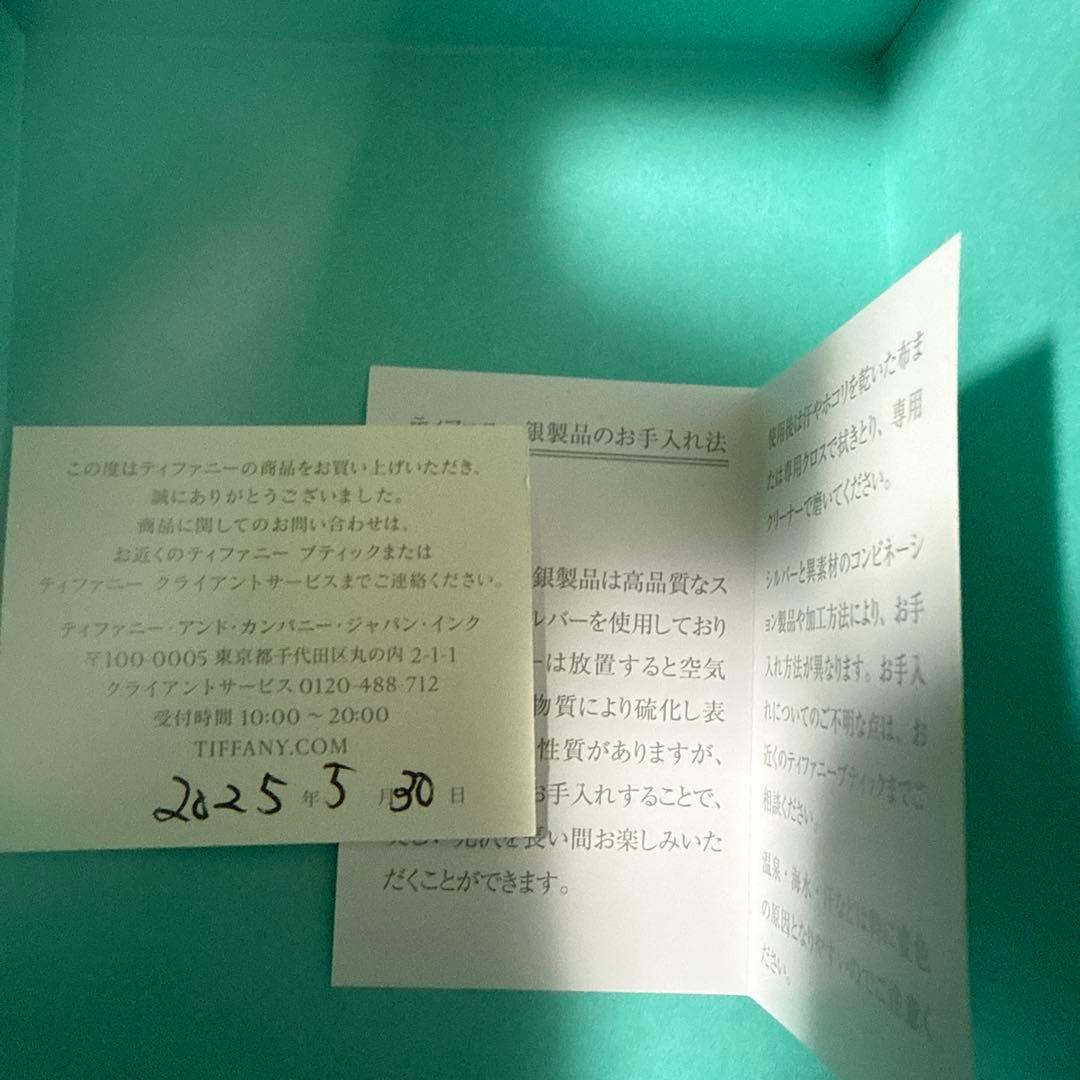 この度はティファニーの商品をお買い上げいただき、
誠にありがとうございました。
商品に関してのお問い合わせは、
お近くのティファニー ブティックまたは
ティファニー クライアントサービスまでご連絡ください。
ティファニー・アンド・カンパニー・ジャパン・インク
〒100-0005 東京都千代田区丸の内 2-1-1
クライアントサービス 0120-488-712
受付時間 10:00 ~ 20:00
TIFFANY.COM
2025 年 5 月 30 日
銀製品のお手入れ法
銀製品は高品質なス
ルバーを使用しており
ーは放置すると空気
物質により硫化し表
性質がありますが、
お手入れすることで、
光沢を長い間お楽しみいた
だくことができます。
使用後は汗やホコリを乾いた布ま
たは専用クロスで拭きとり、専用
クリーナーで磨いてください。
シルバーと異素材のコンビネーシ
ョン製品や加工方法により、お手
入れ方法が異なります。お手入
れについてのご不明な点は、お
近くのティファニーブティックまでご
相談ください。
温泉・海水・汗などは特に変色
の原因となりやすいのでご注意く
ださい。